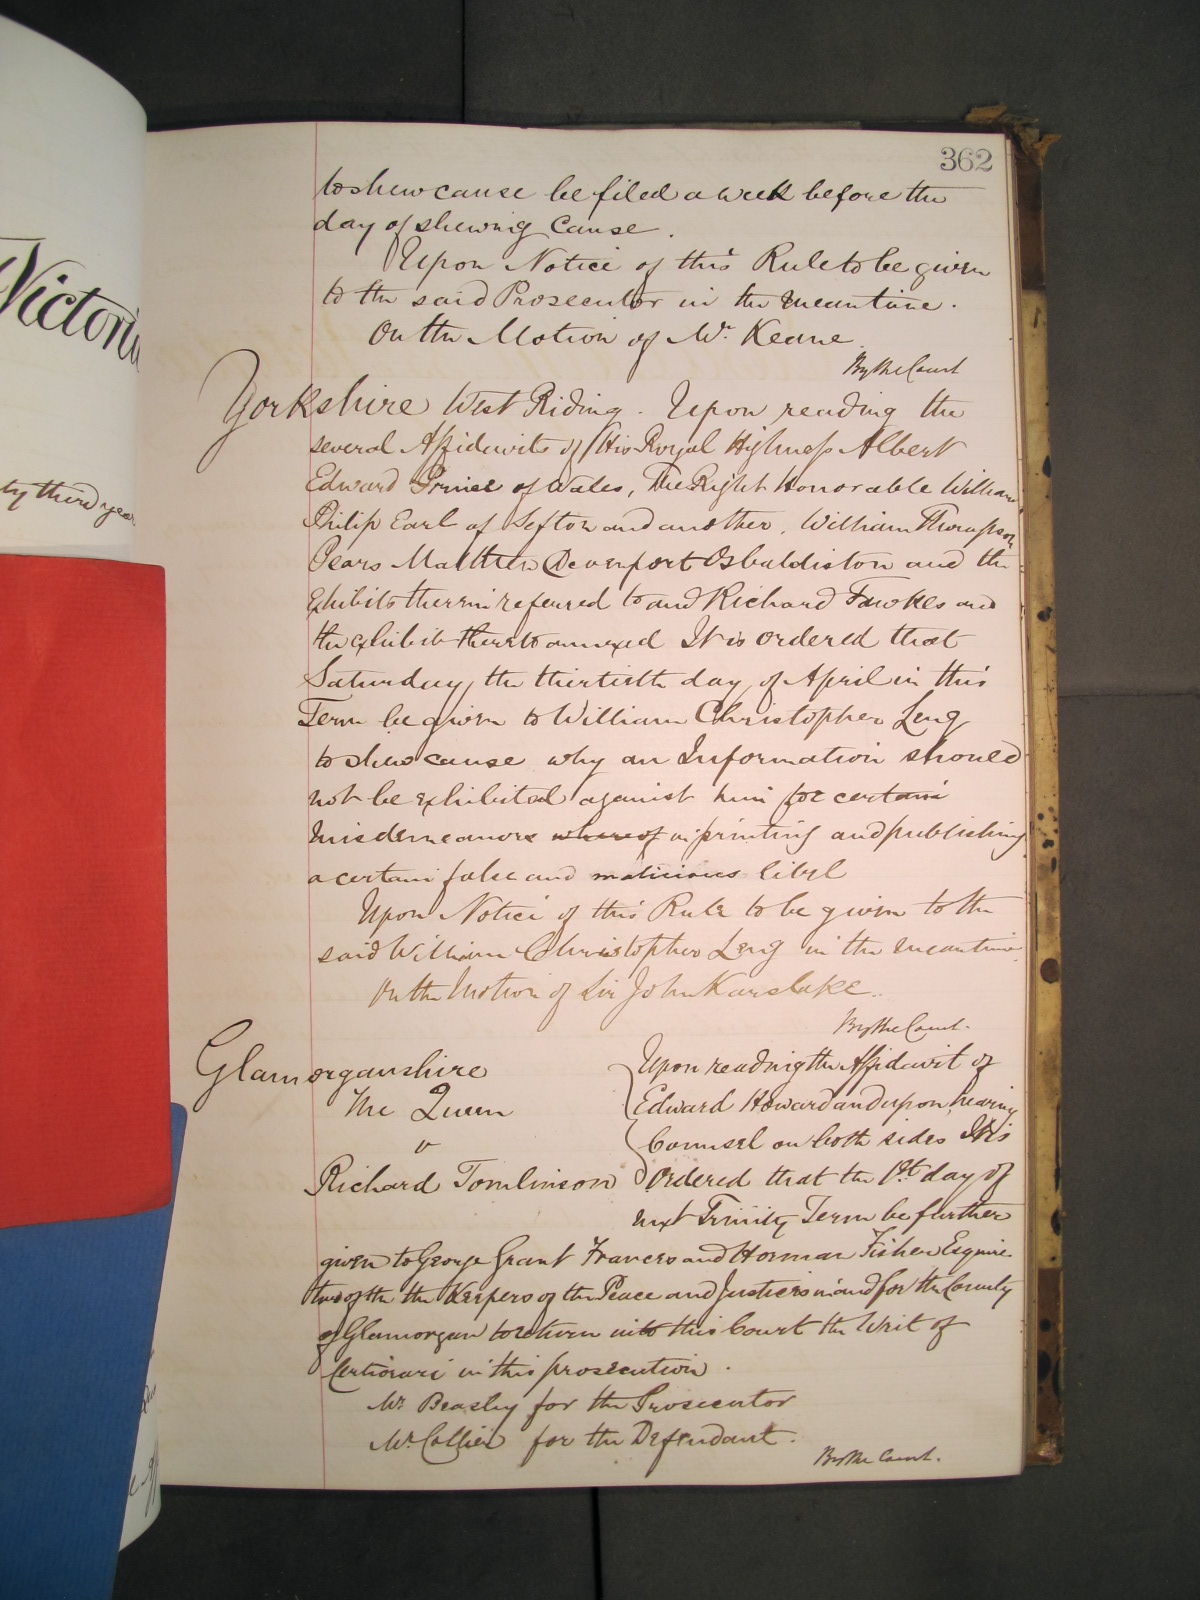 Victoria
ty third year
362
to shew cause be filed a week before the
day of shewing Cause.
Upon Notice of this Rule to be given
to the said Prosecutor in the meantime.
On the Motion of Mr. Keane.
By the Court
Yorkshire West Riding. Upon reading the
several Affidavits of His Royal Highness Albert
Edward Prince of Wales, The Right Honorable William
Philip Earl of Sefton and another, William Thompson
Pears Matthew Devenport Osbaldiston and the
Exhibits therein referred to and Richard Fawkes and
the exhibit thereto annexed It is ordered that
Saturday the thirtieth day of April in this
Term be given to William Christopher Leng
to shew cause why an Information should
not be exhibited against him for certain
misdemeanors whereof in printing and publishing
a certain false and malicious libel
Upon Notice of this Rule to be given to the
said William Christopher Leng in the meantime.
On the Motion of Sir John Karslake.
By the Court.
Glamorganshire
The Queen
v
Richard Tomlinson
Upon reading the Affidavit of
Edward Howard and upon hearing
Counsel on both sides It is
Ordered that the 1st day of
next Trinity Term be further
given to George Grant Francis and Fisher Esquire
two of the the Keepers of the Peace and Justices in and for the County
of Glamorgan to return into this Court the Writ of
Certiorari in this prosecution.
Mr. Beasley for the Prosecutor
Mr. Collier for the Defendant.
By the Court.